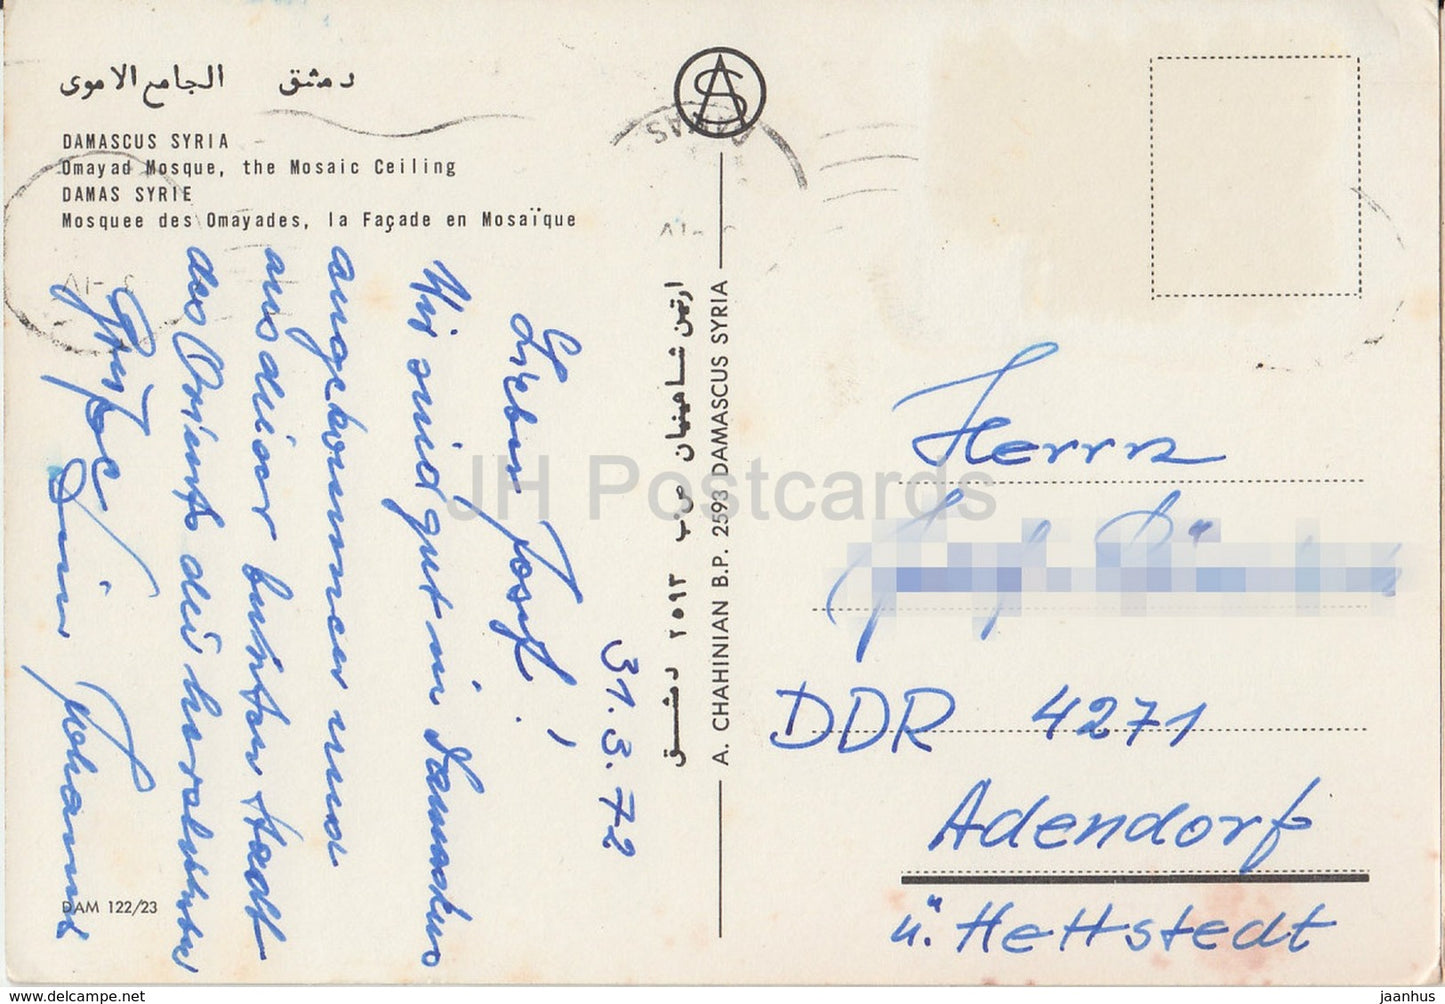 دمشق الجامع الاموى
DAMASCUS SYRIA
Omayad Mosque, the Mosaic Ceiling
DAMAS SYRIE
Mosquee des Omayades, la Façade en Mosaïque
31.3.72
Lieber Josef!
Wir sind gut in Damaskus
angekommen und
aus dieser bunten Stadt
des Orients die herzlichsten
Grüße
Dein Johannes
DAM 122/23
ارتين شاهينيان ص.ب ٢٥٩٣ دمشق
A. CHAHINIAN B.P. 2593 DAMASCUS SYRIA
AS
DAMAS
Herrn
DDR 4271
Adendorf
ü. Hettstedt
JH Postcards
delcampe.net
jaanhus